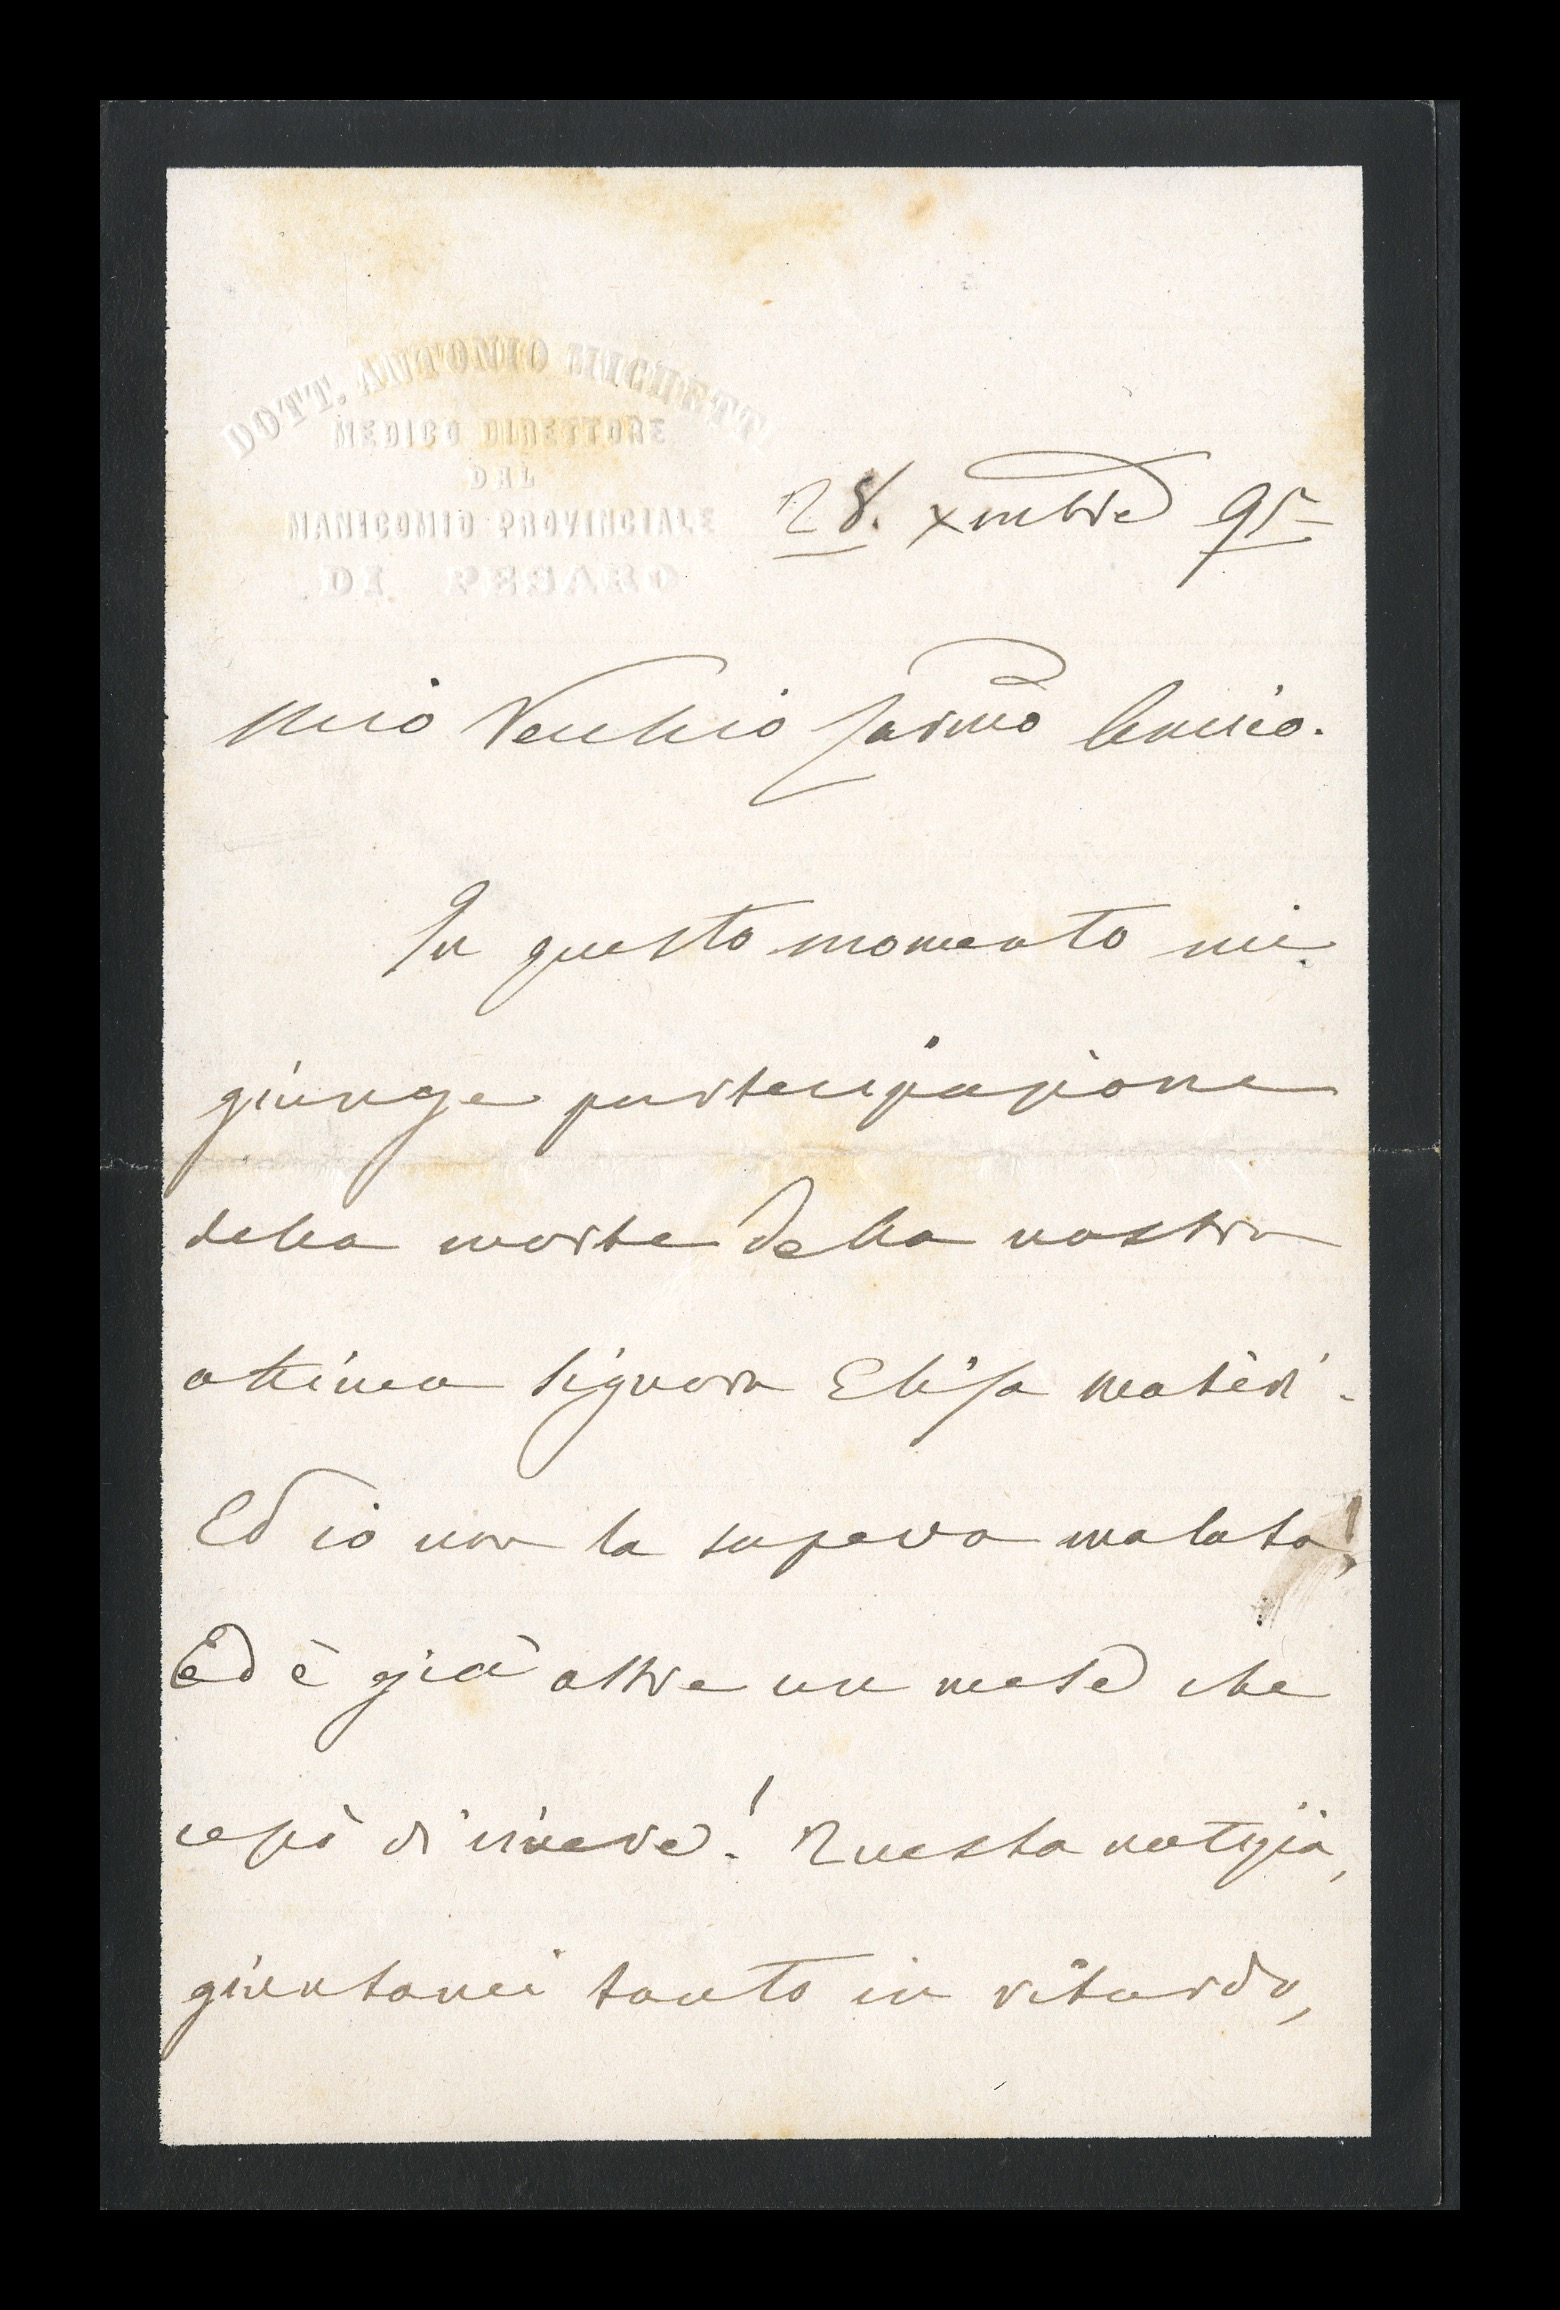 DOTT. ANTONIO MICHETTI
MEDICO DIRETTORE
DEL
MANICOMIO PROVINCIALE
DI PESARO
28. Xmbre 95
Mio Vecchio Carmo Amico.
In questo momento mi
giunge partecipazione
della morte della nostra
ottima Signora Elisa
Ed io non la sapeva malata!
Ed è già oltre un mese che
cessò di vivere! Questa notizia,
giuntami tanto in ritardo,